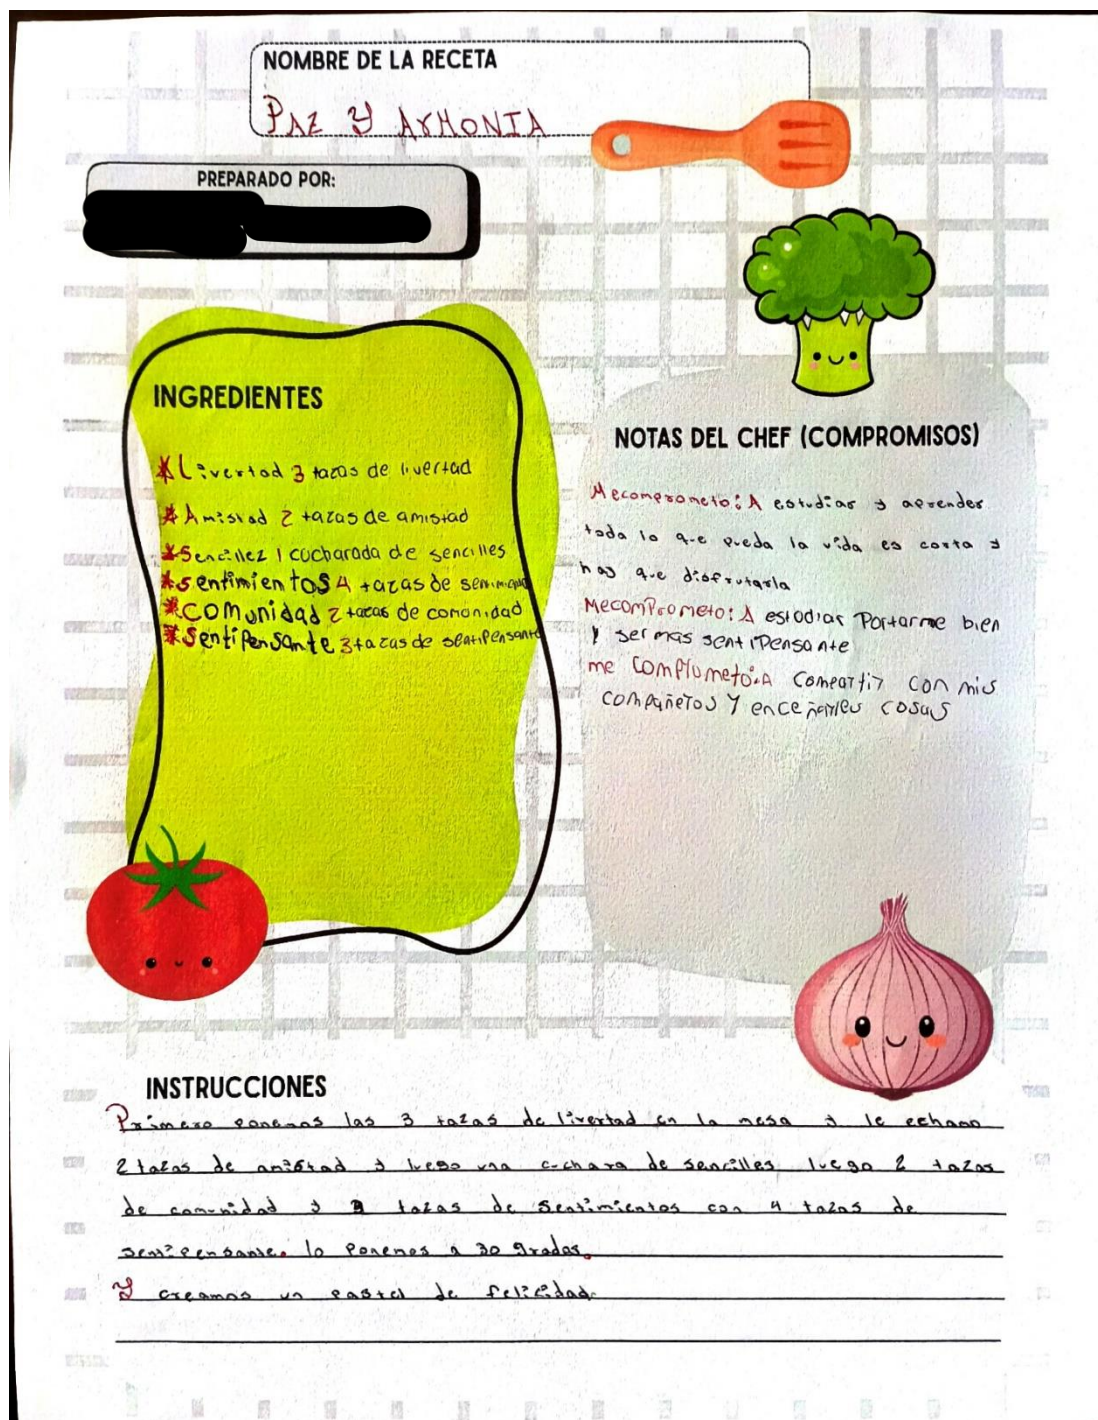 NOMBRE DE LA RECETA
PAZ Y ArMONIA
PREPARADO POR:
INGREDIENTES
*Livertad 3 tazas de livertad
*Amistad 2 tazas de amistad
*Sencillez 1 cucharada de sencilles
*sentimientos 4 tazas de
*comunidad 2 tazas de comunidad
*sentipensante 3 tazas de sentipensante
NOTAS DEL CHEF (COMPROMISOS)
Mecomprometo: A estudiar y aprender
toda lo que pueda la vida es corta y
hay que disfrutarla
Mecomprometo: A estodiar Portarme bien
y ser mas sentipensante
me complometo: A compartir con mis
compañeros Y enceñarles cosas
INSTRUCCIONES
Primero ponemos las 3 tazas de livertad en la mesa y le echamo
2 tazas de amistad y luego una cuchara de sencilles luego 2 tazas
de comunidad y 3 tazas de sentimientos con 4 tazas de
sentipensante. lo ponemos a 30 grados.
Y creamos un pastel de felicidad.